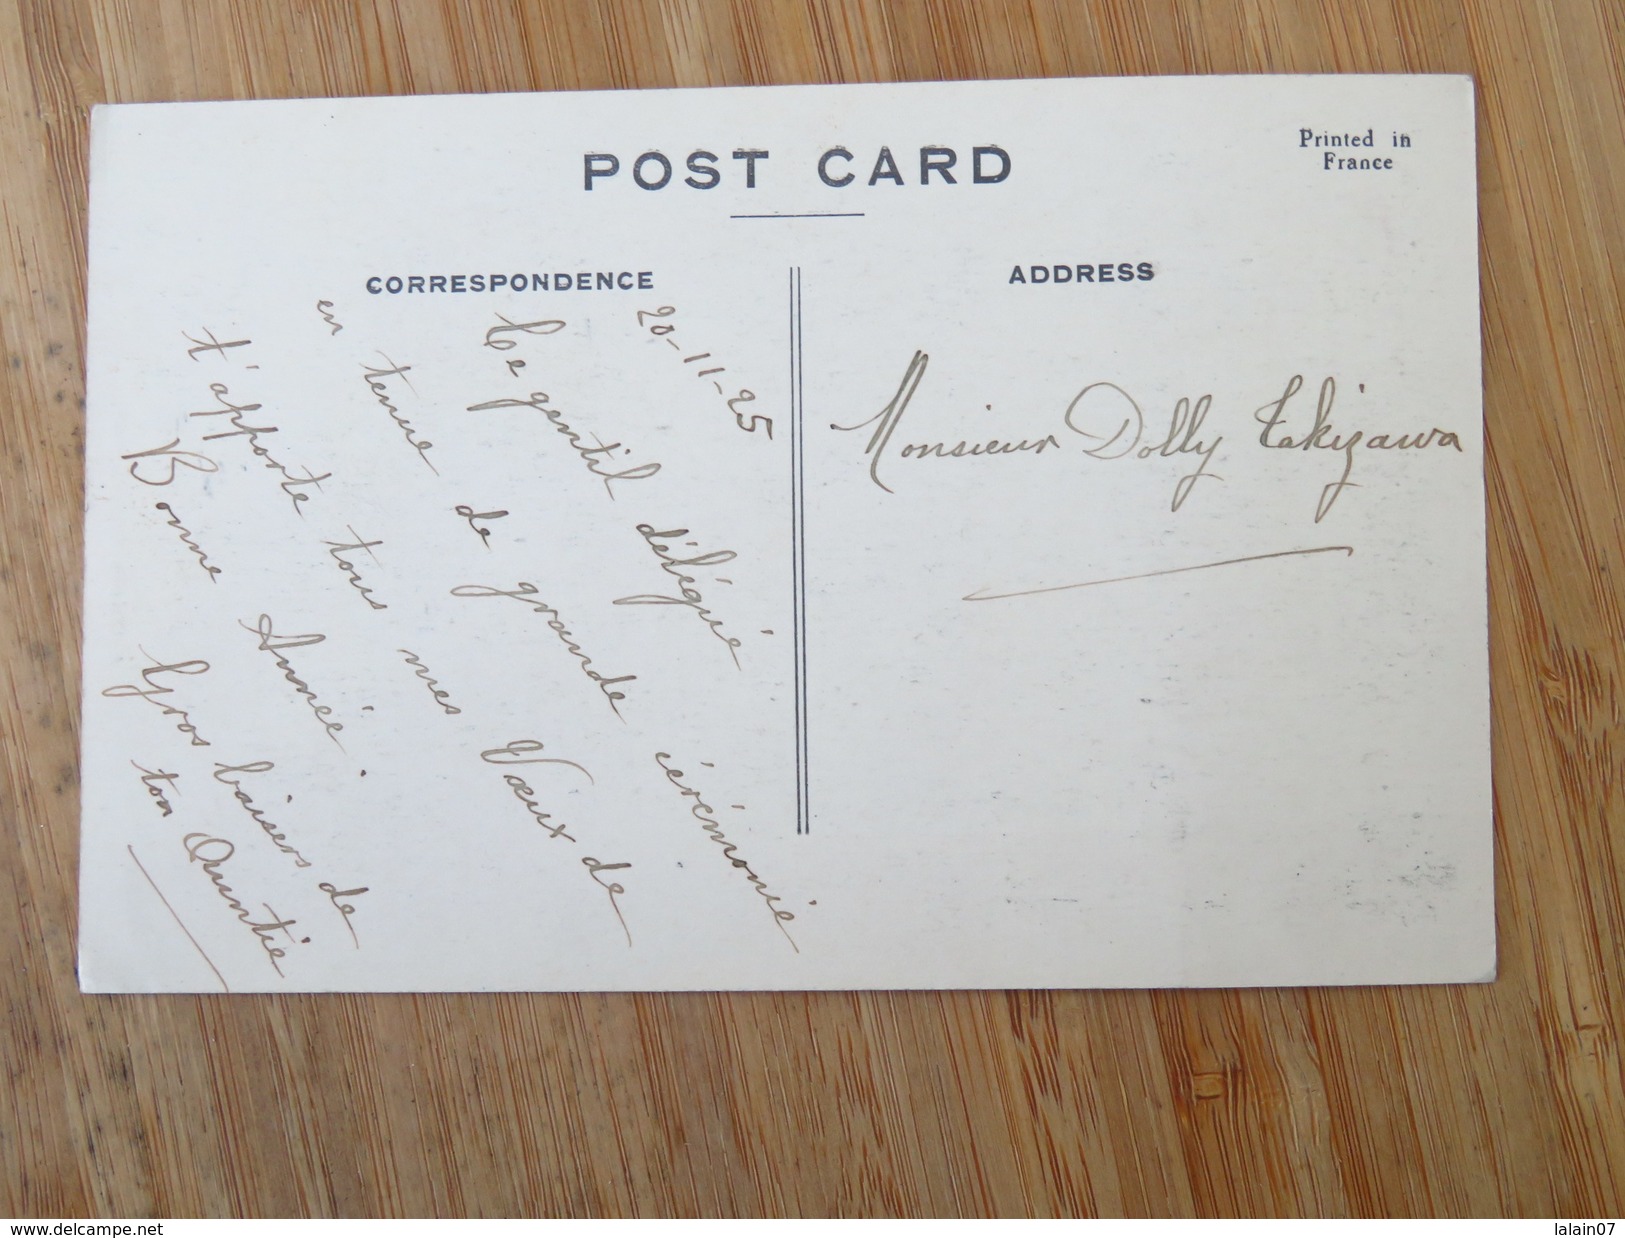 POST CARD
Printed in
France
CORRESPONDENCE
ADDRESS
20-11-25
Ce gentil délégué
en tenue de grande cérémonie
t'apporte tous mes Vœux de
Bonne Année.
Gros baisers de
ton Auntie
Monsieur Dolly Takizawa
www.delcampe.net
lalain07